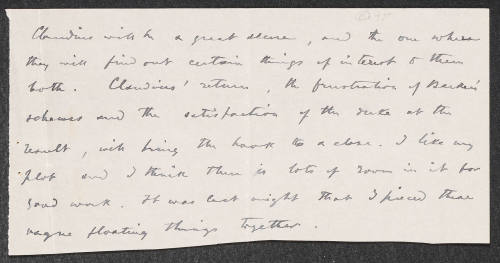 Claudius will be a great scene, and the one where
they will find out certain things of interest to them
both. Claudius' return, the frustration of Barker's
schemes and the satisfaction of the duke at the
result, will bring the book to a close. I like my
plot and I think there is lots of room in it for
good work. It was last night that I pieced these
vague floating things together.